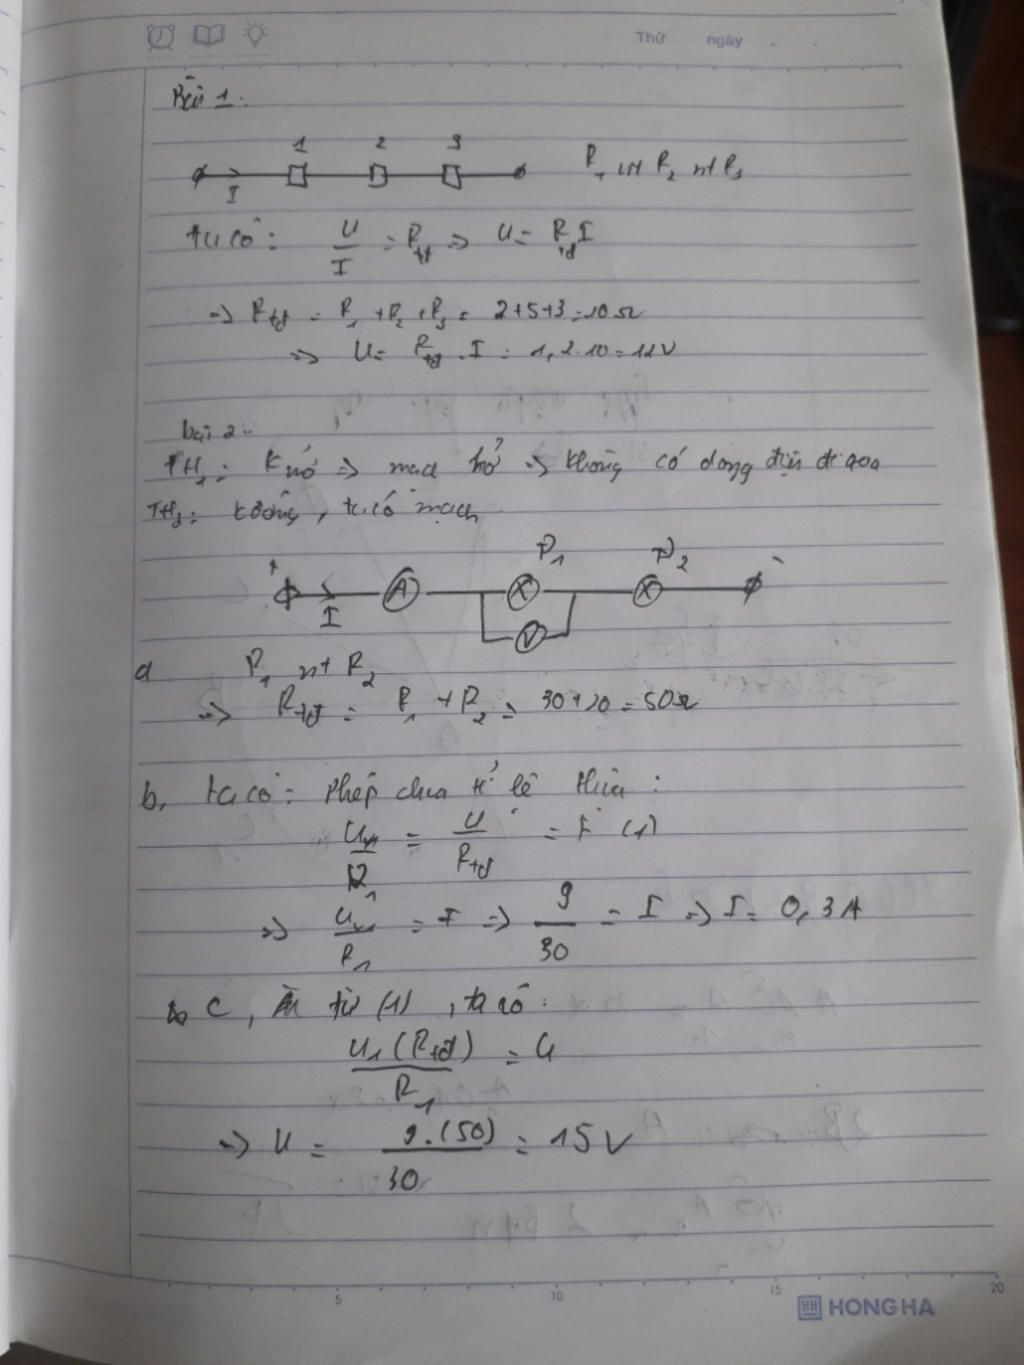 Thứ ngày
Bài 1.
1 2 3
I
R1 nt R2 nt R3
ta có: U/I = Rtđ => U = Rtđ I
=> Rtđ = R1 + R2 + R3 = 2+5+3 = 10Ω
=> U = Rtđ . I = 1,2.10 = 12V
bài 2.
K mở => mạch hở => không có dong điện đi qoa
k đóng, ta có mạch
+ I A Đ1 V Đ2 -
a R1 nt R2
=> Rtđ = R1 + R2 = 30+20 = 50Ω
b, ta có: Phép chia tỉ lệ thức:
= U/Rtđ = I (1)
=> = I => 9/30 = I => I = 0,3A
c, từ (1), ta có:
U1(Rtđ)/R1 = U
=> U = 9.(50)/30 = 15V
5 10 15 20
HONG HA